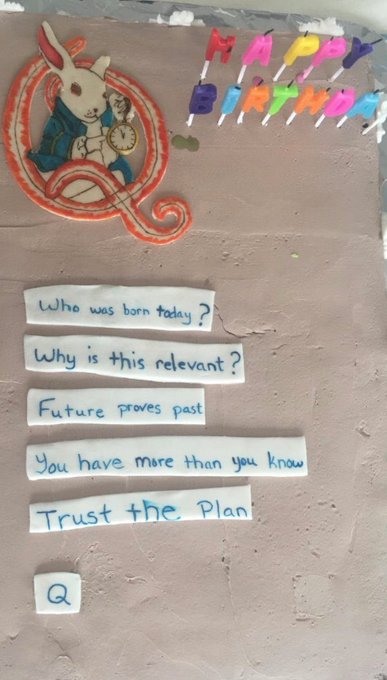 HAPPY
BIRTHDA
Q
Who was born today?
Why is this relevant?
Future proves past
You have more than you know
Trust the Plan
Q